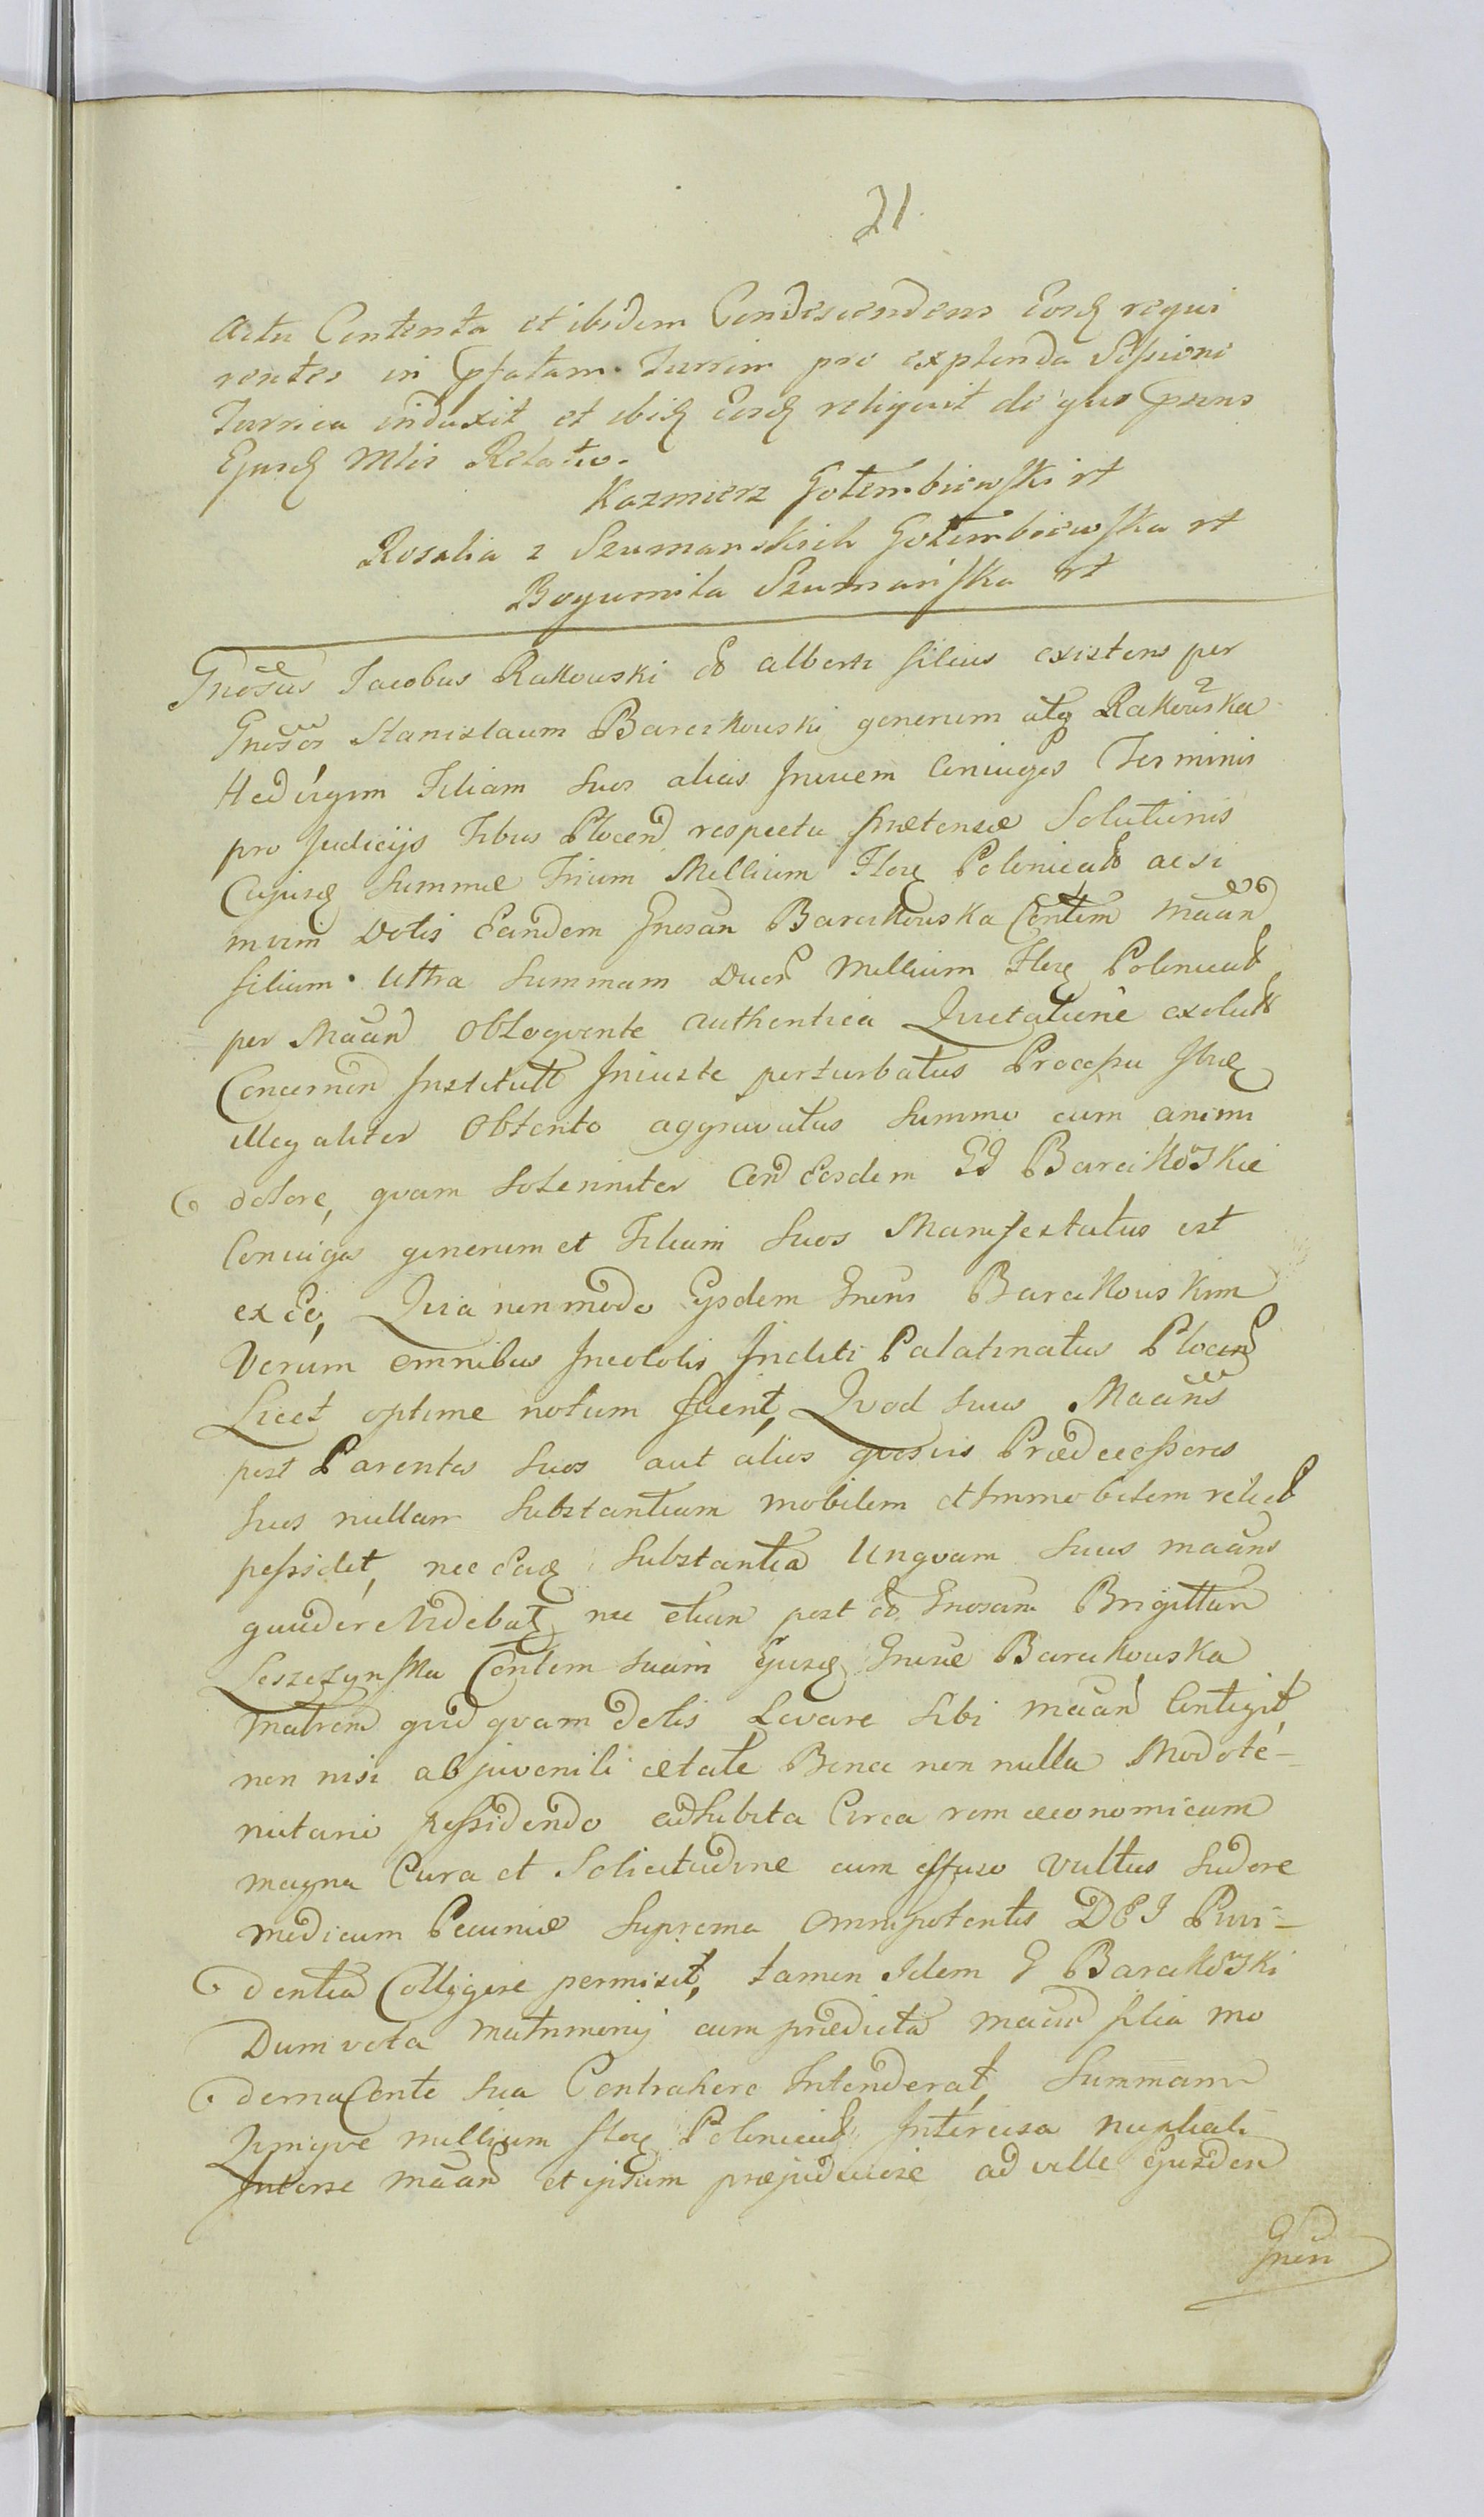 21.
Actu Contenta et ibidem Condescendens Eosq requi
rentes in Pfatam Turrim pro explenda Sessione
Turrica induxit et ibiq Eosq reliquit de quo Pnens
Ejusq Mlis Relatio.
Kazmierz Gołembiewski rt
Rosalia z Szumanskich Gołembiewska rt
Bogumiła Szumańska rt
Gnosus Jacobus Rakowski Alberti filius existens per
Gnosos Stanislaum Barcikouski generum atq Rakowska
Hedvigim Filiam Suos alias Invicem Coniuges Terminis
pro Judicijs Tribus Plocen respectu prætensæ Solutionis
Cujusq Summæ Trium Mellium Flor Polonical ac si
muim Dotis Eandem Gnosan Barcikouska Contem Maan
filiam Ultra Summam Duor Millium Flor Polonical
per Maan Obloqvente authentica Qvietatione exolut
Concernen Institutt Iniuste perturbatus Processu
illegaliter Obtento aggravatus Summo cum animi
dolore, qvam Solenniter Con Eosdem GG Barcikoskie
Coniuges generum et Filiam Suos Manifestatus est
ex Eo, Qvia non modo Ejsdem Gnens Barcikouskim
Verum omnibus Incololis Incliti Palatinatus Plocen
Licet optime notum fuerit, Qvod Suus Maans
post Parentes Suos aut alios qvosvis Prædecessores
Suos nullam Substantiam mobilem et Immobilem relict
possidet, nec Eaq Substantia Unqvam Suus maans
gaudere Videbat nec etiam post Gnosam Brigittam
Leszczynska Contem Suam Ejusq Gnenæ Barcikouska
Matrem qvid qvam dotis Levare Sibi maan Contigit,
non nisi ab juvenili ætate Bona non nulla Modo te-
nutario possidendo adhibita Circa rem œconomicam
magna Cura et Solicitudine cum effuso Vultus Sudore
modicum Pecuniæ Suprema Omnipotentis DEI Provi-
dentia Colligere permisit, tamen Idem G Barcikoski
Dum vota matrimonij cum prædicta maan filia mo
derna Conte Sua Contrahere Intenderat, Summam
Qvinqve millium flor Polonical Intercisa nuptiali
Inter se maan et ipsum præjudiciose ad velle Ejusdem
Gnen